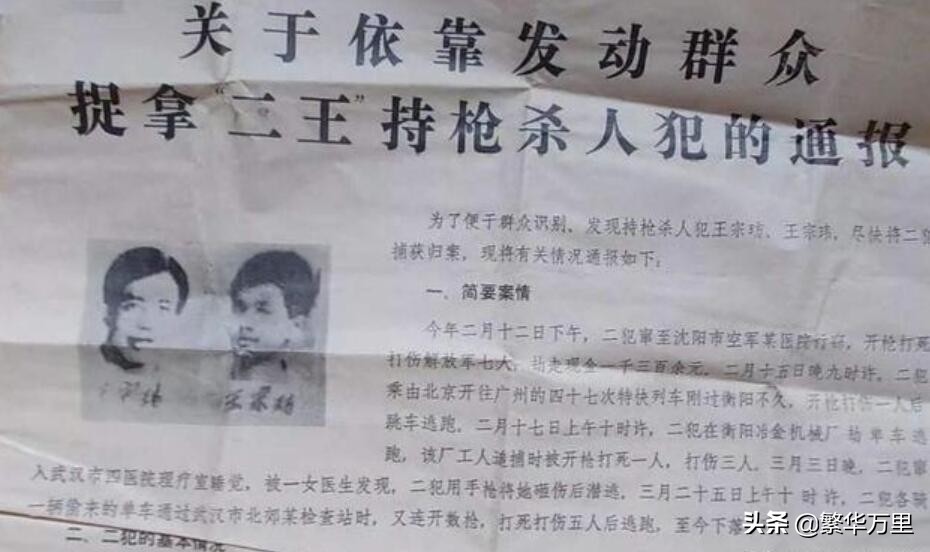 关于依靠发动群众
捉拿“二王”持枪杀人犯的通报
为了便于群众识别、发现持枪杀人犯王宗坊、王宗玮，尽快将二犯
捕获归案，现将有关情况通报如下：
一、简要案情
今年二月十二日下午，二犯窜至沈阳市空军某医院行窃，开枪打死
打伤解放军七人，劫走现金一千三百余元。二月十五日晚九时许，二犯
乘由北京开往广州的四十七次特快列车刚过衡阳不久，开枪打伤一人后
跳车逃跑。二月十七日上午十时许，二犯在衡阳冶金机械厂劫单车逃
跑，该厂工人追捕时被开枪打死一人，打伤三人。三月三日晚，二犯窜
入武汉市四医院理疗室睡觉，被一女医生发现，二犯用手枪将她砸伤后潜逃。三月二十五日上午十时许，二犯各骑
一辆偷来的单车通过武汉市北郊某检查站时，又连开数枪，打死打伤五人后逃跑，至今下落
二、二犯的基本情况
头条 @繁华万里